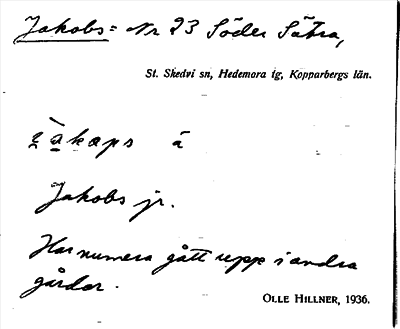 Jakobs = Nr 23 Söder Sätra,
St. Skedvi sn, Hedemora tg, Kopparbergs län.
jàkaps ä
Jakobs jr.
Har numera gått upp i andra
gårdar.
OLLE HILLNER, 1936.